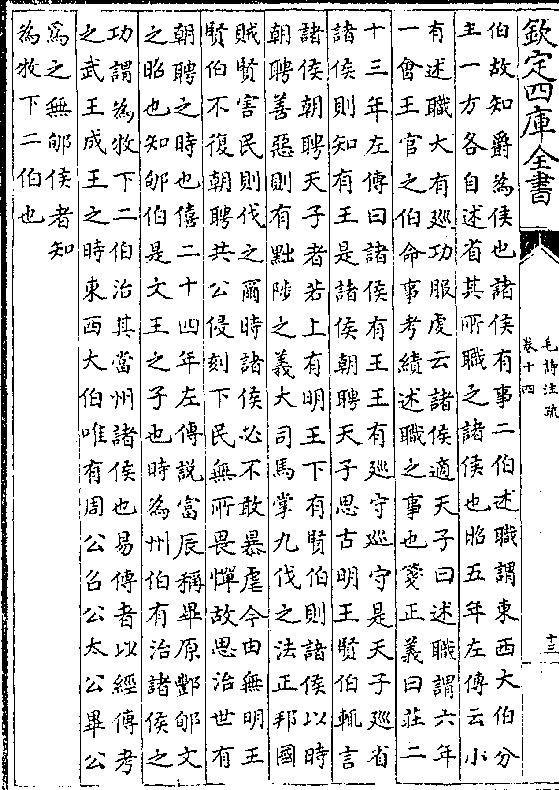 欽定四庫全書
毛詩注疏
卷十四
十三
伯故知爵為侯也諸侯有事二伯述職謂東西大伯分
主一方各自述省其所職之諸侯也昭五年左傳云小
有述職大有廵功服虔云諸侯適天子曰述職謂六年
一會王官之伯命事考績述職之事也箋正義曰莊二
十三年左傳曰諸侯有王王有廵守廵守是天子廵省
諸侯則知有王是諸侯朝聘天子思古明王賢伯輒言
諸侯朝聘天子者若上有明王下有賢伯則諸侯以時
朝聘善惡則有黜陟之義大司馬掌九伐之法正邦國
賊賢害民則伐之爾時諸侯必不敢暴虐今由無明王
賢伯不復朝聘共公侵刻下民無所畏憚故思治世有
朝聘之時也僖二十四年左傳說富辰稱畢原酆郇文
之昭也知郇伯是文王之子也時為州伯有治諸侯之
功謂為牧下二伯治其當州諸侯也易傳者以經傳考
之武王成王之時東西大伯唯有周公召公太公畢公
為之無郇侯者知
為牧下二伯也